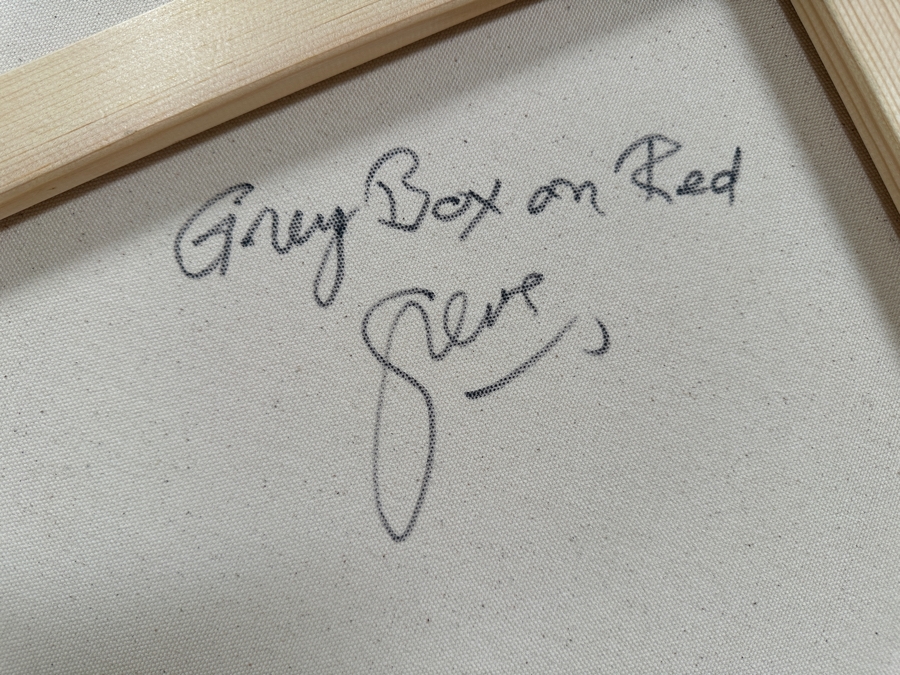 Grey Box on Red